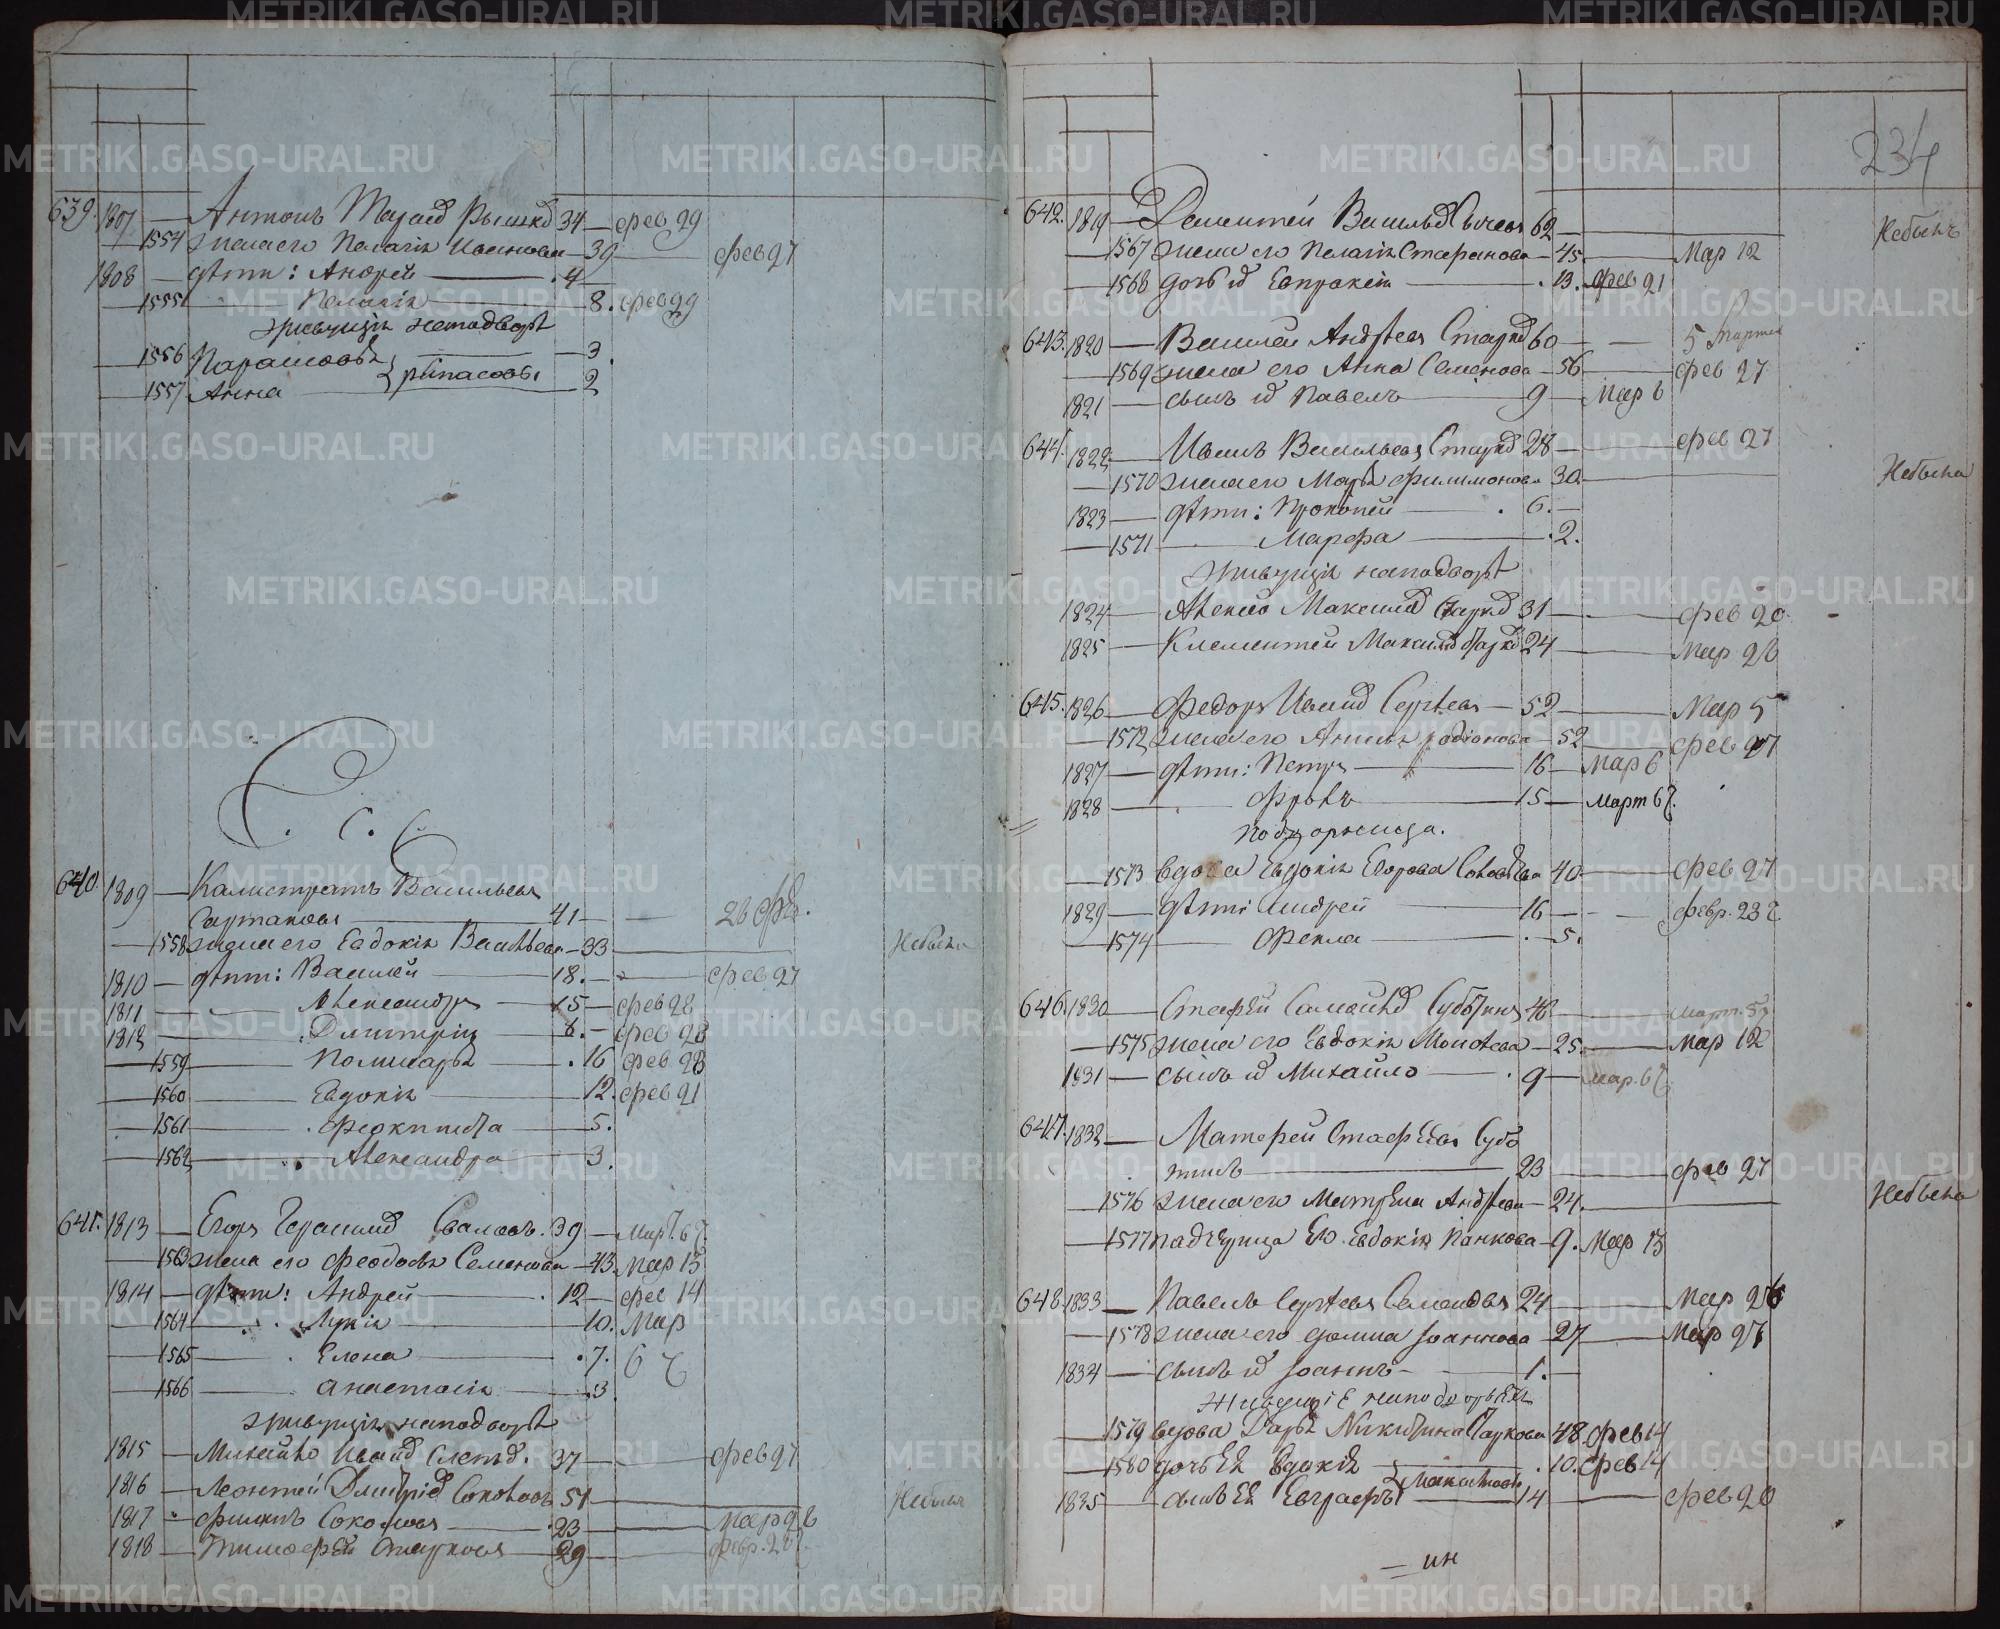 639. 1807 — Антонъ Тарасов 34 — фев 29
1554 жена его Пелагия Иванова — 39 — фев 27
1808 — дѣти: Андрей — 4 —
1555 — Пелагия — 8. фев 29
живущія на подворѣ
1556 3
1557 Анна — 2
С. С. С.
640. 1809 — Калистратъ Васильевъ
Сартаковъ — 41 — 26 фев.
1558 жена его Евдокия Васильева — 33 — Небыла
1810 — дѣти: Василей — 18. — фев 27
1811 — Александръ — 15 — фев 28
1812 — Дмитрій — 8. — фев 28
1559 — 16 фев 28
1560 — Евдокія — 12. фев 21
1561 — Феоктиста — 5.
1562 — Александра — 3.
641. 1813 — Егоръ Герасимов 39 — Март. 6
1563 жена его Феодосья Семенова — 43. Мар 13
1814 — дѣти: Андрей — 12 — фев 14
1564 — 10. Мар
1565 — Елена — 7. 6
1566 — Анастасія — 3.
живущія на подворѣ
1815 — Михайло Иванов 37 — фев 27
1816 — Леонтей Дмитріев Соколовъ 51 — Небылъ
1817 — Филипъ Соколовъ — 23 — Мар 26
1818 — Тимофей Старковъ — 29 — февр. 28
234
642. 1819 — Дементей Васильев Сычевъ 62 — Небылъ
1567 жена его Пелагия Стафанова — 45. — Мар 12
1568 дочь их Евпраксия — 13. — фев 21
643. 1820 — Василей Андреевъ Старков 60 — 5 Марта
1569 жена его Анна Семенова — 56 — фев 27
1821 — сынъ их Павелъ — 9 — Мар 6
644. 1822 — Иванъ Васильевъ Старков 28 — фев 27
1570 жена его Марья Филимонова 30. — Небыла
1823 — дѣти: Прокопей — 6. —
1571 — Марфа — 2.
живущія на подворѣ
1824 — Алексей Максимов Старков 31 — фев 20
1825 — Климентей Максимов Старков 24 — Мар 26
645. 1826 — Федоръ Иванов Сергѣевъ — 52 — Мар 5
1572 жена его Анисья Родіонова — 52 — фев 27
1827 — дѣти: Петръ — 16 — Мар 6
1828 — Фролъ — 15 — Март 6
Подворница.
1573 вдова Евдокия Егорова 40 — фев 27
1829 — дѣти Андрей — 16 — февр. 23
1574 — Фекла — 5.
646. 1830 — Стафей Самойлов Суботинъ 48 — Март. 5
1575 жена его Евдокия Моисѣева — 25. — Мар 12
1831 — сынъ их Михайло — 9 — Мар. 6
647. 1832 — Матфей Стафѣевъ Субо
тинъ — 23 — фев 27
1576 жена его Матрена Андрѣева — 24. — Небыла
1577 падчерица Ею Евдокия Панкова — 9. Мар 13
648. 1833 — Павелъ Сергѣевъ 24 — Мар 26
1578 жена его Домна Іоаннова — 27 — Мар 27
1834 — сынъ их Іоаннъ — 1. —
Живущіе на подворьѣ
1579 вдова Дарья Никитина Старкова 48. фев 14
1580 дочь Ея Евдокия — 10. фев 14
1835 — сынъ Ея Евграфъ — 14 — фев 20